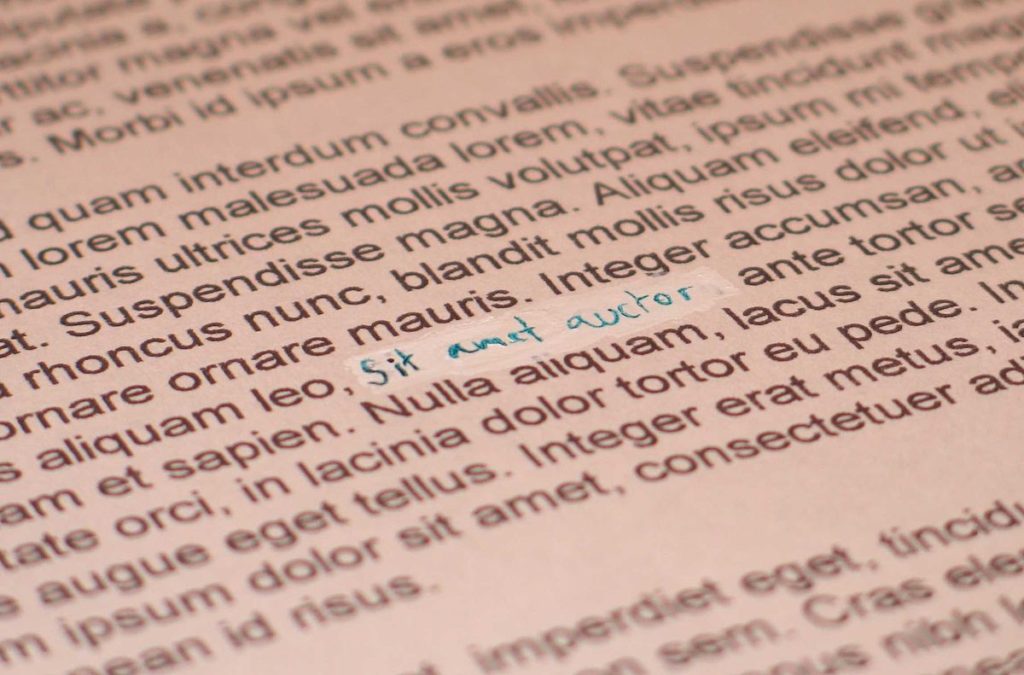 lacinia s, congue
rttitor magna vel en
ac, venenatis sit amet
s. Morbi id ipsum a eros imperdi
quam interdum convallis. Suspendisse grav
lorem malesuada lorem, vitae tincidunt mag
mauris ultrices mollis volutpat, ipsum mi tempo
at. Suspendisse magna. Aliquam eleifend, eli
a rhoncus nunc, blandit mollis risus dolor ut i
ornare ornare mauris. Integer accumsan, a
s aliquam leo, Sit amet auctor ante tortor se
am et sapien. Nulla aliquam, lacus sit ame
tate orci, in lacinia dolor tortor eu pede. In
e augue eget tellus. Integer erat metus, ia
m ipsum dolor sit amet, consectetuer ad
nean id risus.
t, imperdiet eget, tincidu
on sem. Cras ele
cus nibh